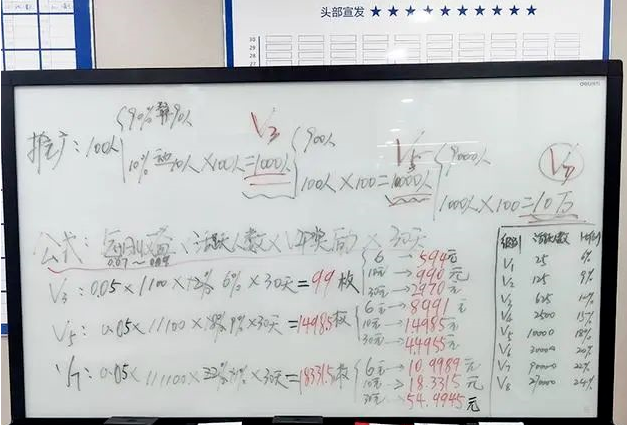 头部宣发 ★★★★★★★★★★★
30
29
28
deli
90% 90人
V3
900人
V5
9000人
V7
推广：100人
10% 10人×100人=1000人
100人×100=10000人
1000人×100=10万
公式： ×活跃人数×V奖励×30天
0.07～
级别 活跃人数
V1 25 6%
V2 125 9%
V3 625 12%
V4 2500 15%
V5 10000 18%
V6 30000 20%
V7 90000 22%
V8 270000 24%
V3：0.05×1100×12% 6%×30天=99枚
6→594元
10元→990元
30元→2970元
V5：0.05×11100×18% 9%×30天=1498.5枚
6元→8991元
10元→14985元
30元→44955元
V7：0.05×111100×22% 11%×30天=18331.5枚
6元→10.9989元
10元→18.3315元
30元→54.9945元